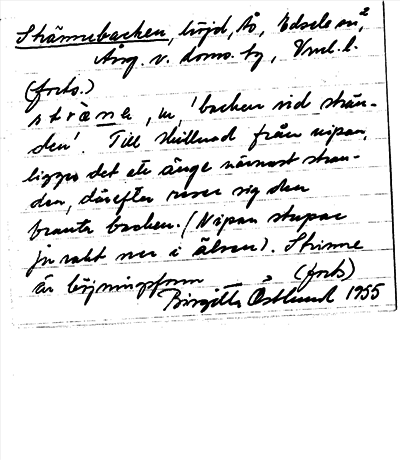 Strännebacken, höjd, Ås, Edsele sn,
Ång. v. doms. by, Vnl. l.
(forts.)
sträne, m, 'backen vid strän-
den'. Till skillnad från nipan,
ligger det ett änge närmast stran-
den, därefter reser sig den
branta backen. (Nipan stupar
ju rakt ner i älven). Stränne
är böjningsform (forts)
Birgitta Östlund 1955